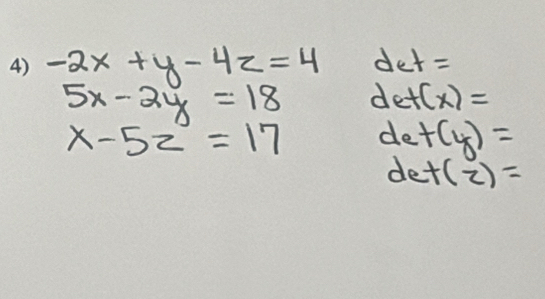 4) -2x + y - 4z = 4 det =
5x - 2y = 18 det(x) =
x - 5z = 17 det(y) =
det(z) =